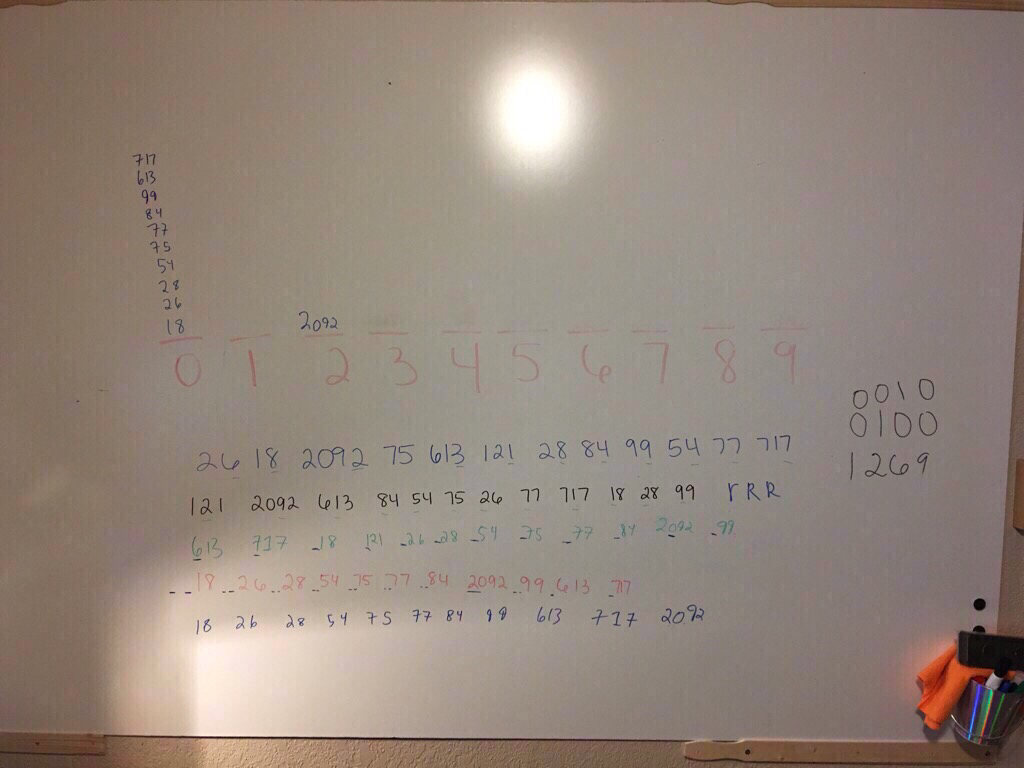 717
613
99
84
77
75
54
28
26
18 2092
0 1 2 3 4 5 6 7 8 9
0010
0100
1269
26 18 2092 75 613 121 28 84 99 54 77 717
121 2092 613 84 54 75 26 77 717 18 28 99 r R R
613 717 _18 121 _26 _28 _54 _75 _77 _84 2092 _99
_ _18 _ _26 _ _28 _ _54 _ _75 _ _77 _ _84 2092 _ _99 _613 _717
18 26 28 54 75 77 84 99 613 717 2092